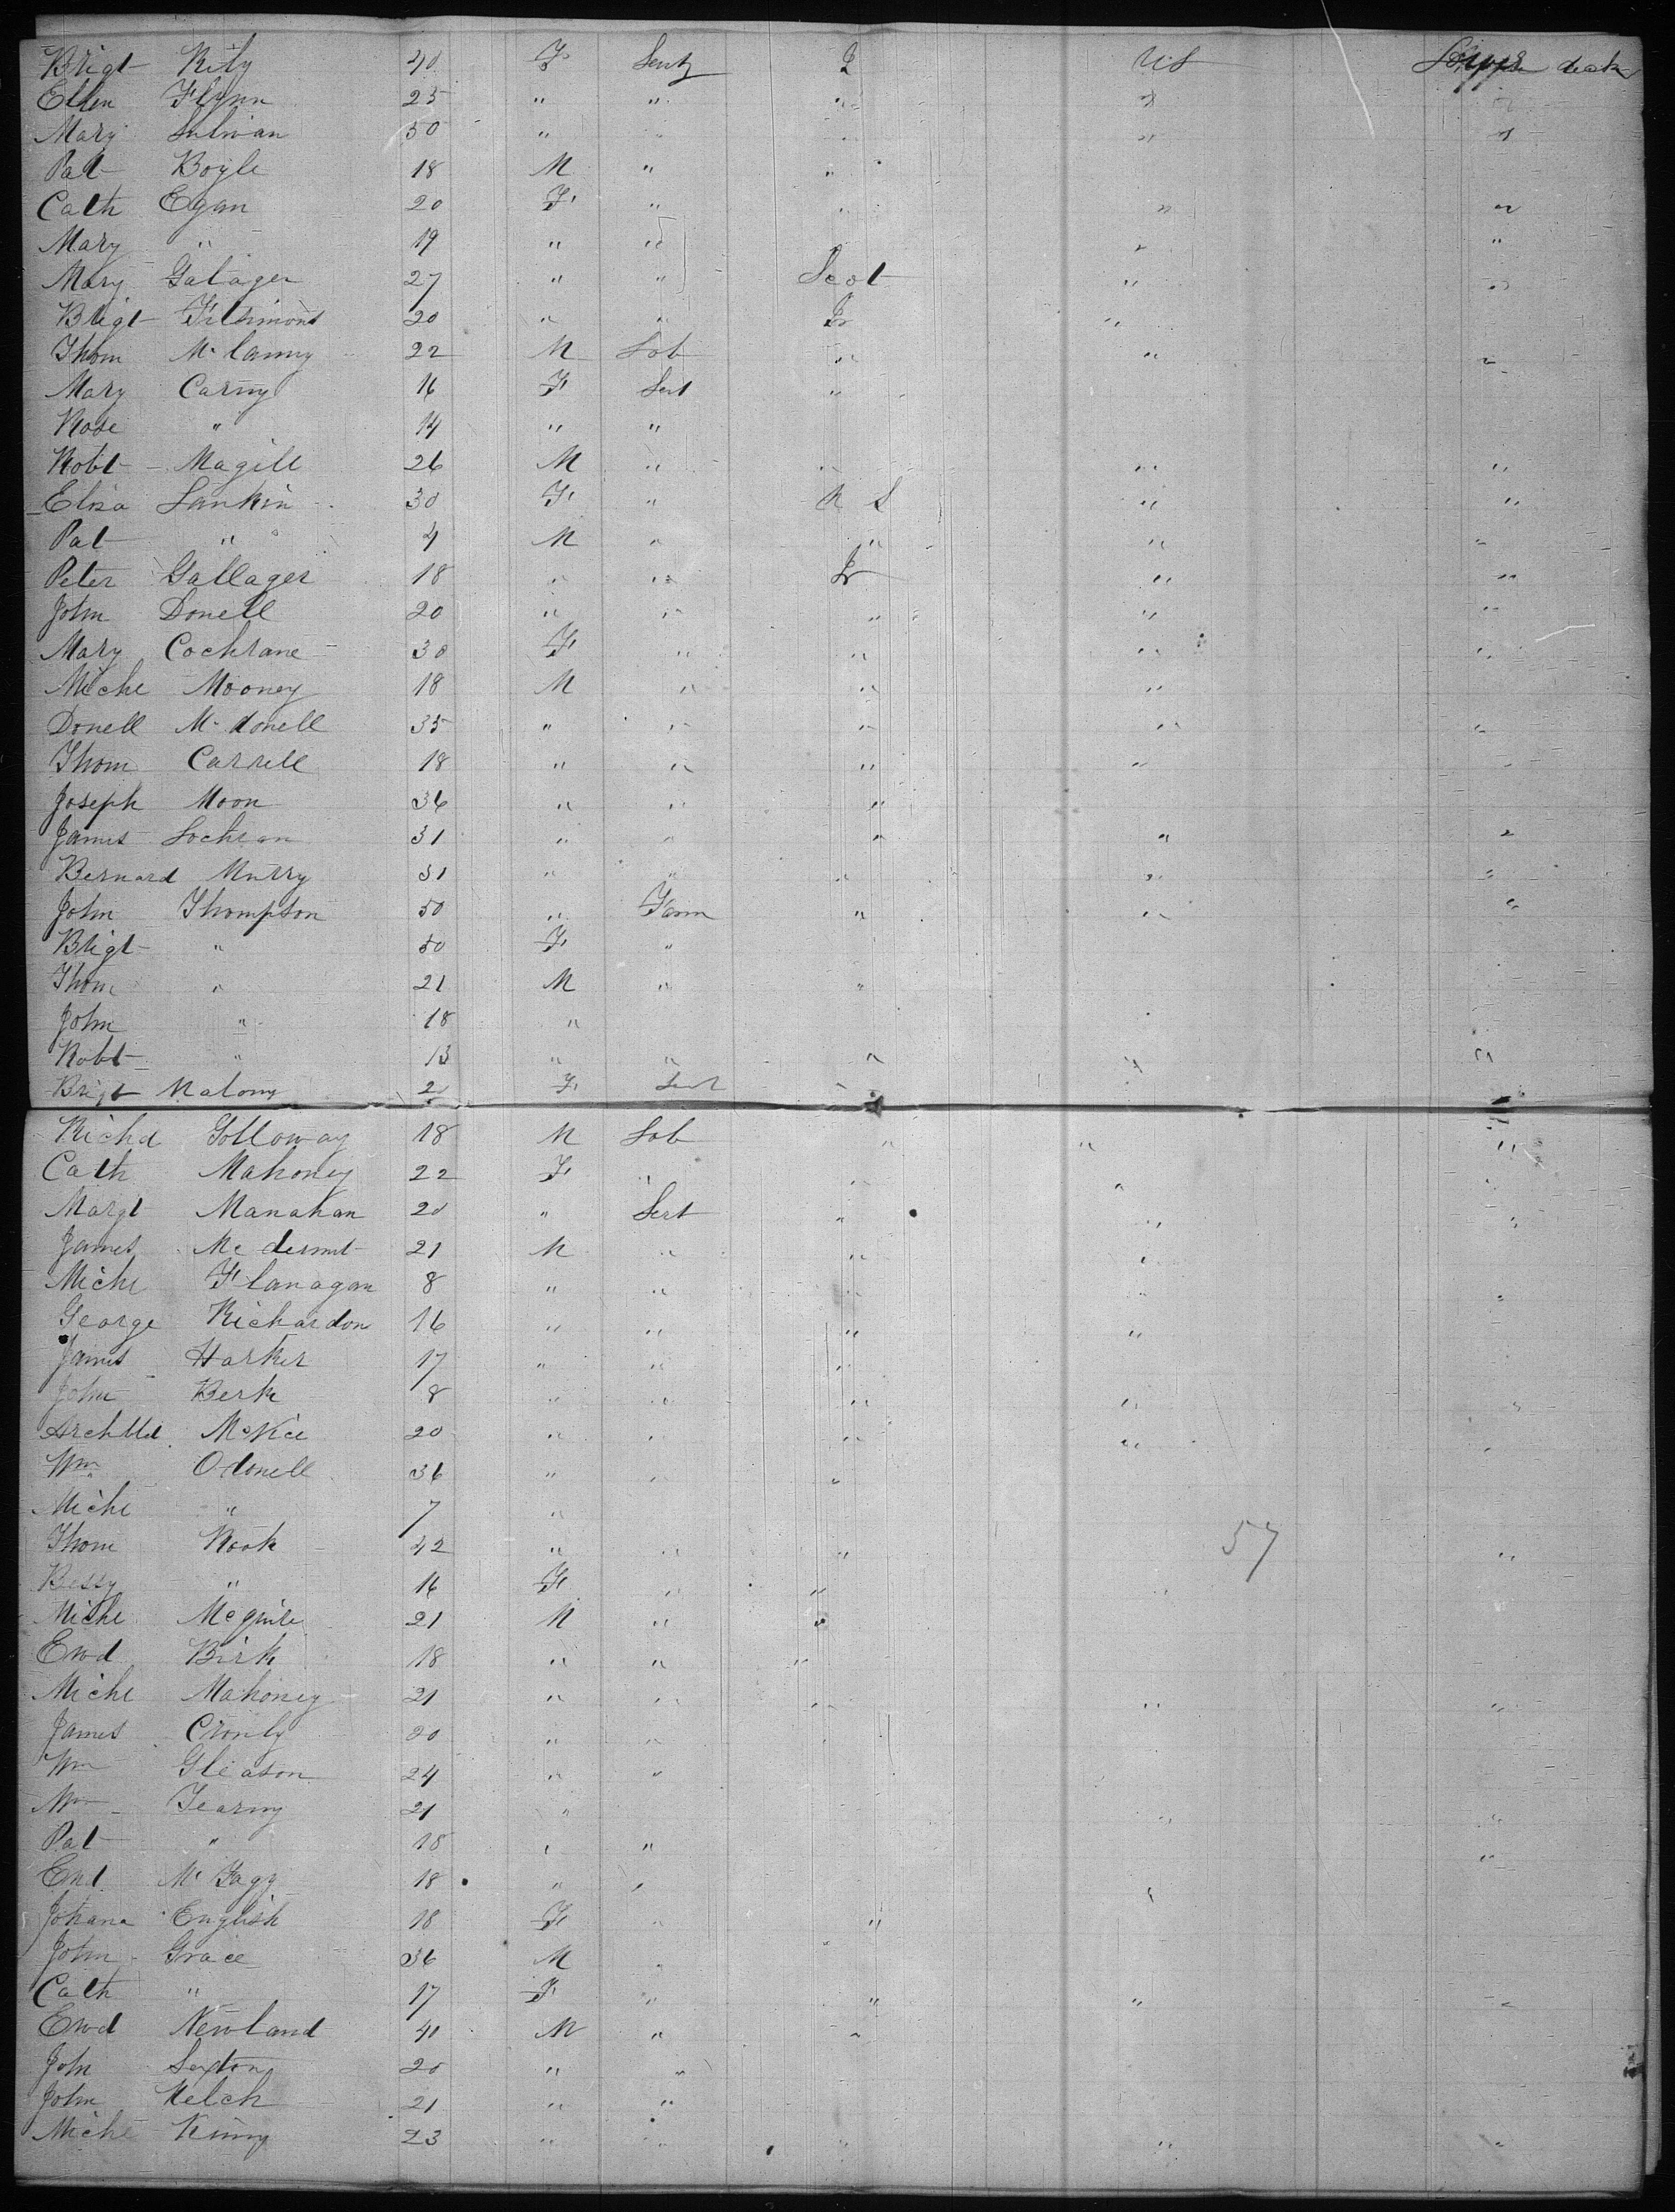 Brigt Rily 40 F Sevt I US Upper deck
Ellen Flynn 25 " " " " "
Mary Sulivan 50 " " " " "
Pat Boyle 18 M " "
Cath Egan 20 F " " " "
Mary " 19 " " " "
Mary Galager 27 " " Scot " "
Brigt Fitsimons 20 " " Ir "
Thom Mc lanny 22 M Lab " " "
Mary Carny 16 F Sevt "
Rose " 14 " "
Robt Magill 26 M " " " "
Eliza Lankin 30 F " U S " "
Pat " 4 M " " " "
Peter Gallager 18 " " Ir " "
John Donell 20 " " " " "
Mary Cochrane 30 F " " " "
Miche Mooney 18 M " " "
Donell Mc donell 35 " " " " "
Thom Carrell 18 " " " " "
Joseph Moon 36 " " "
James Lochran 31 " " " " "
Bernard Murry 31 " " " " "
John Thompson 50 " Farm " " "
Brigt " 50 F "
Thom " 21 M " "
John " 18 "
Robt " 13 " " " " "
Brigt Malony 2 F Sevt "
Richd Golloway 18 M Lab " " "
Cath Mahoney 22 F " " " "
Margt Manahan 20 " Sert " " "
James Mc dermit 21 M " " "
Miche Flanagan 8 " " " "
George Richardon 16 " " " "
James Harker 17 " " "
John Berk 8 " " " " "
Archbld McKee 20 " " " " "
Wm Odonell 36 " " "
Miche " 7 "
Thom Rook 42 " " " 57 "
Bessy " 16 F " "
Miche Mcguire 21 M " "
Ewd Birk 18 " " "
Miche Mahoney 21 " " " " "
James Cronly 20 " "
Wm Gleason 24 " "
Wm Tearny 21 " " "
Pat " 18 " " "
18 " "
Johana English 18 F " "
John Grace 36 M " "
Cath " 17 F " " " "
Ewd Newland 40 M " "
John Sexton 20 " "
John Welch 21 " "
Miche Kinny 23 " " " " "